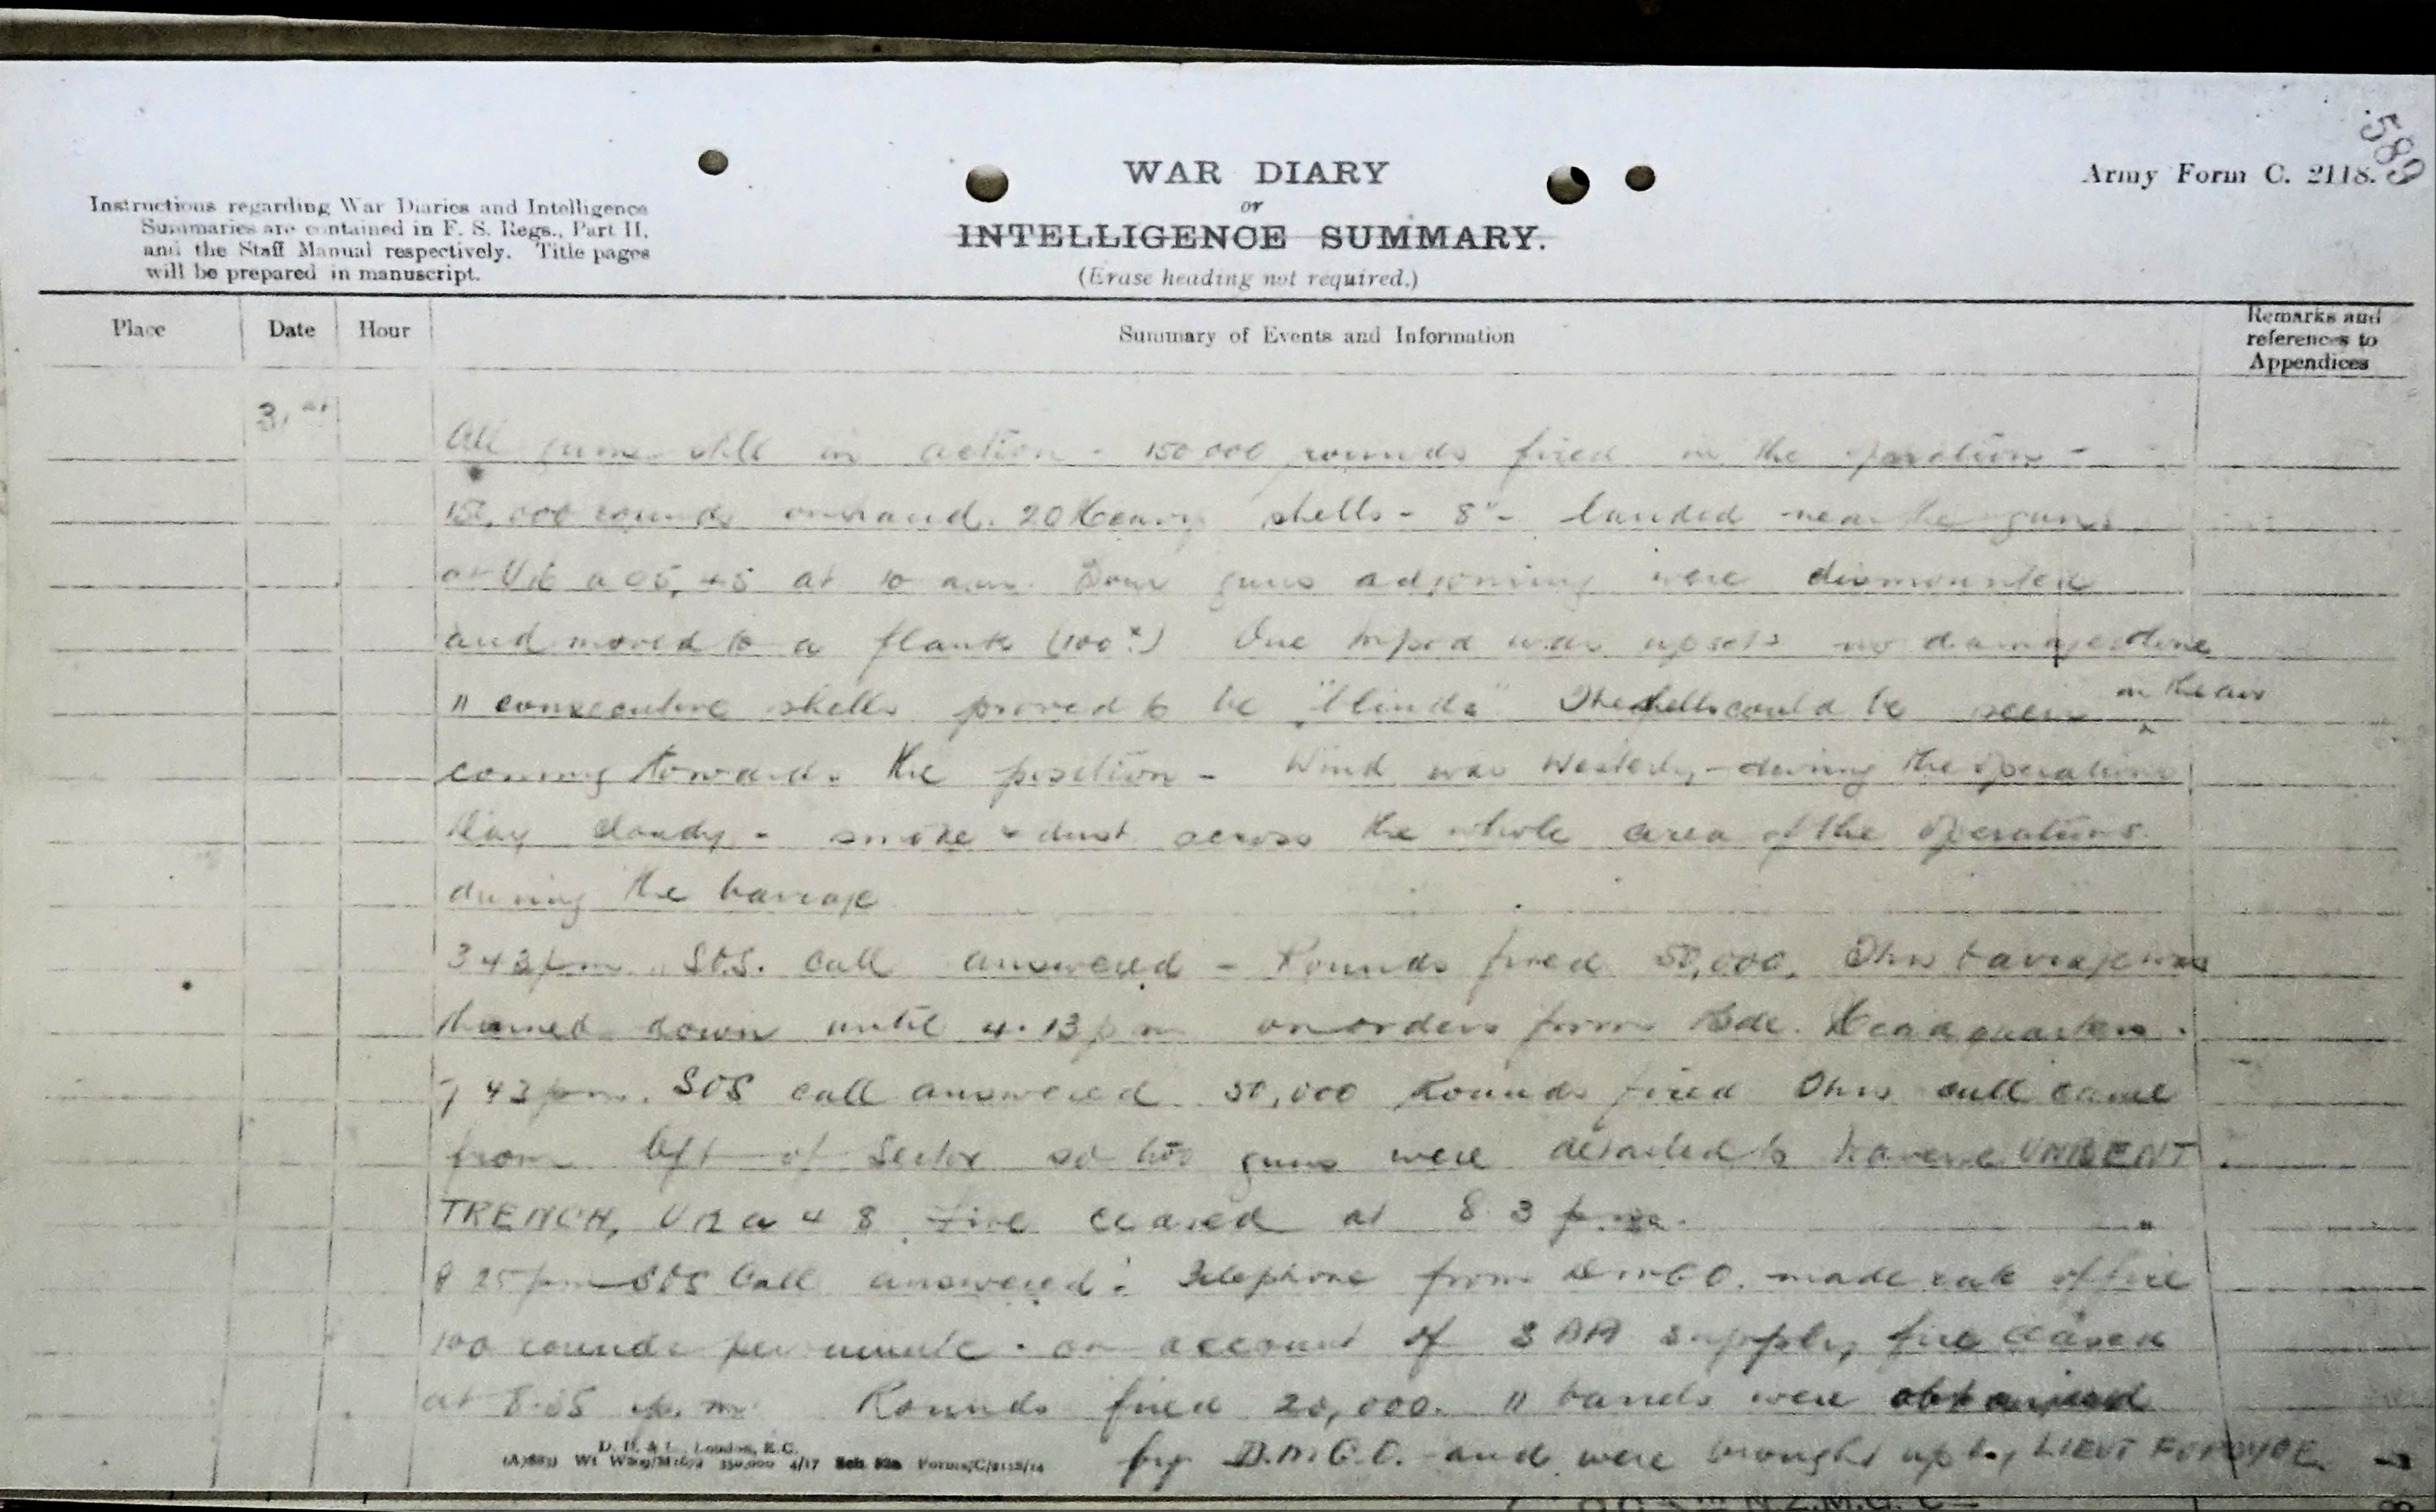 589
Army Form C. 2118.
WAR DIARY
or
INTELLIGENCE SUMMARY.
(Erase heading not required.)
Instructions regarding War Diaries and Intelligence
Summaries are contained in F. S. Regs., Part II.
and the Staff Manual respectively. Title pages
will be prepared in manuscript.
Place Date Hour Summary of Events and Information Remarks and references to Appendices
31st
All guns still in action - 150 000 rounds fired in the operation -
150,000 rounds on hand. 20 Heavy shells - 8" - landed near the guns
at U.16 a 05,45 at 10 a.m. Four guns adjoining were dismounted
and moved to a flank (100x) One tripod was upset: no damage done
11 consecutive shells proved to be "blinds" The shells could be seen in the air
coming towards the position - Wind was Westerly - during the operations
Day cloudy - smoke & dust across the whole area of the operations
during the barrage
3 43 pm S.O.S. call answered - Rounds fired 50,000. This barrage was
thinned down until 4.13 pm on orders from Bde. Headquarters.
7 43 pm. SOS call answered 50,000 Rounds fired This call came
from left of Sector so two guns were detailed to traverse UNBENT
TRENCH, U 12 a 4 8 Fire ceased at 8 3 p.m.
8 25 pm SOS Call answered: Telephone from D.M.G.O. made rate of fire
100 rounds per minute - on account of SAA supply, fire ceased
at 8.55 p.m. Rounds fired 20,000. 11 bands were obtained
by D.M.G.O. and were brought up by LIEUT FORDYCE
D. D. & L., London, E.C.
Forms/C/2118/14